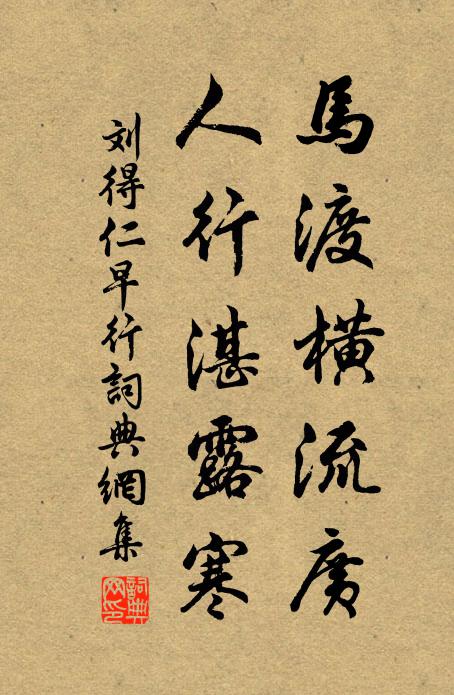 馬渡橫流廣
人行湛露寒
刘得仁早行詞典網集
詞典网印